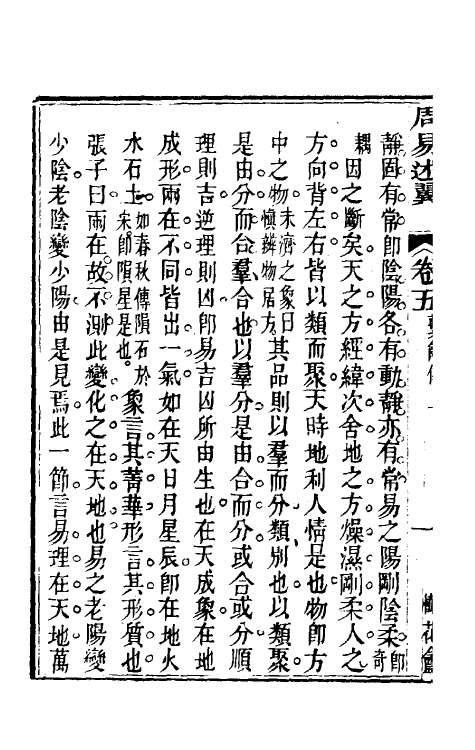 周易述翼 卷五 一
靜固有常卽陰陽各有動靜亦有常易之陽剛陰柔卽奇
耦因之斷矣天之方經緯次舍地之方燥濕剛柔人之
方向背左右皆以類而聚天時地利人情是也物卽方
中之物未濟之象曰愼辨物居方其品則以羣而分類別也以類聚
是由分而合羣合也以羣分是由合而分或合或分順
理則吉逆理則凶卽易吉凶所由生也在天成象在地
成形兩在不同皆出一氣如在天日月星辰卽在地火
水石土如春秋傳隕石於宋卽隕星是也象言其菁華形言其形質也
張子曰兩在故不測此變化之在天地也易之老陽變
少陰老陰變少陽由是見焉此一節言易理在天地萬